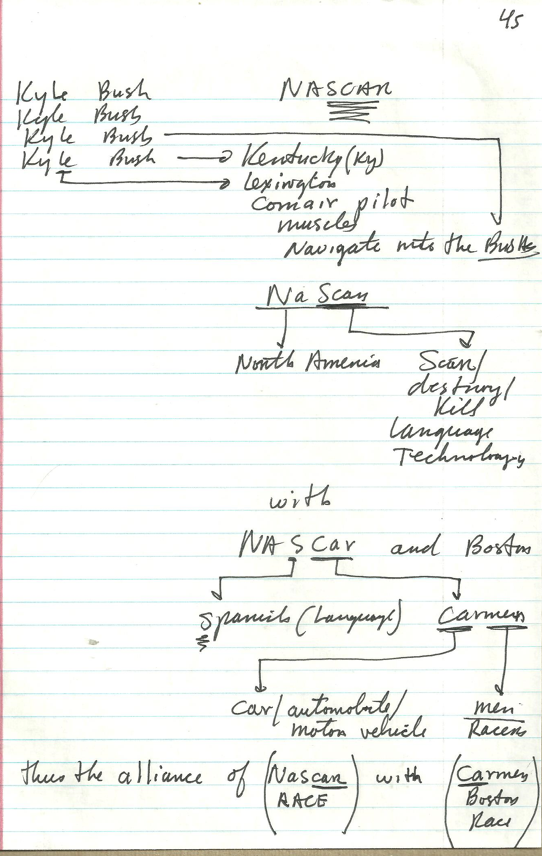 45
Kyle Bush
NASCAR
Kyle Bush
Kyle Bush
Kyle Bush Kentucky (Ky)
Lexington
Comair pilot
muscles
Navigate into the Bushs
Na Scan
North America Scan/
destroy/
Kill
Language
Technology
with
NASCar and Boston
Spanish (Language) Carmen
Car/automobile/ men
motor vehicle Racers
thus the alliance of (Nascar with (Carmen
RACE) Boston
Race)